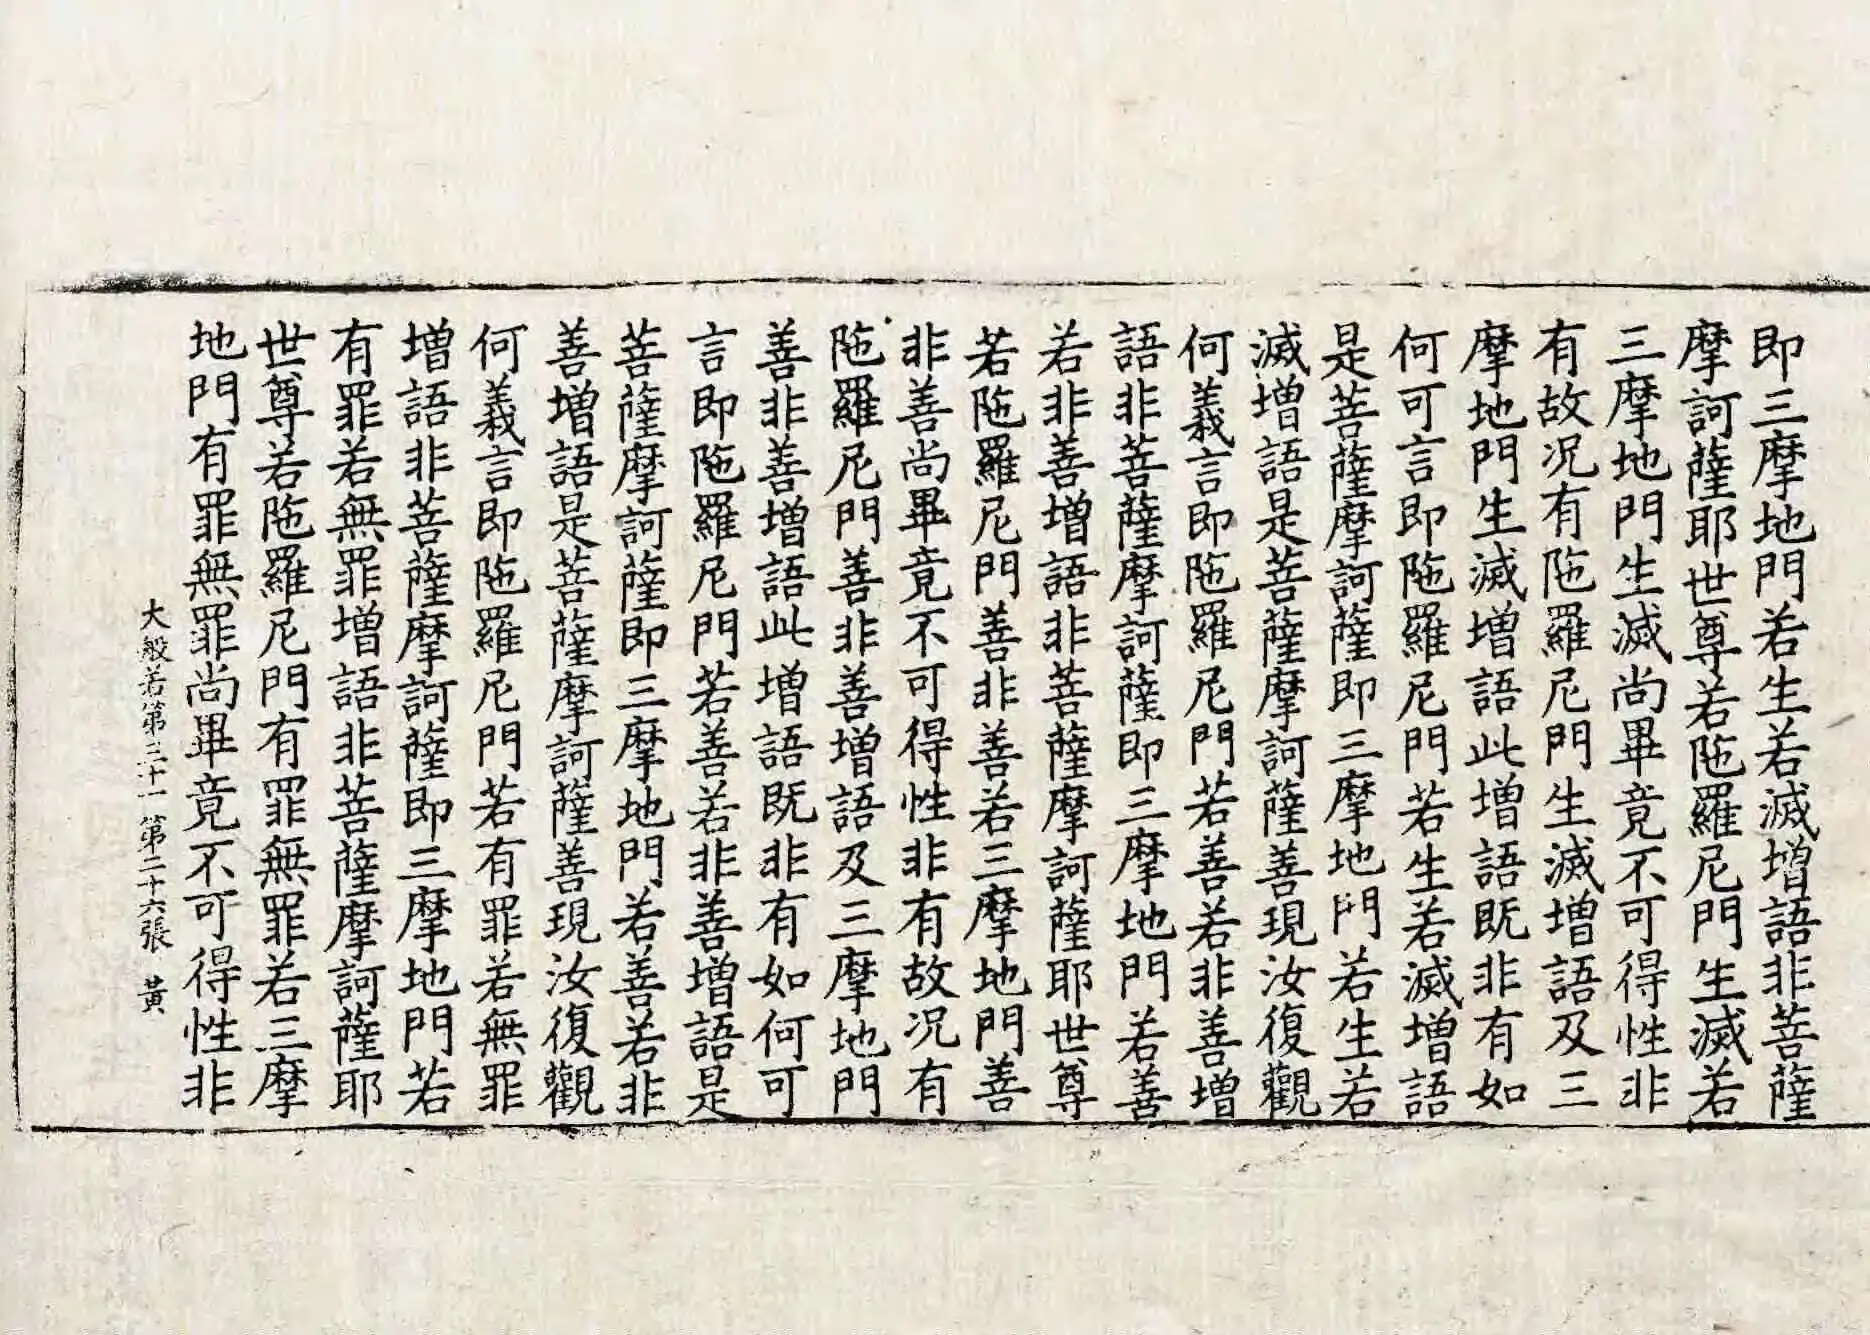 即三摩地門若生若滅增語非菩薩
摩訶薩耶世尊若陁羅尼門生滅若
三摩地門生滅尚畢竟不可得性非
有故况有陁羅尼門生滅增語及三
摩地門生滅增語此增語既非有如
何可言即陁羅尼門若生若滅增語
是菩薩摩訶薩即三摩地門若生若
滅增語是菩薩摩訶薩善現汝復觀
何義言即陁羅尼門若善若非善增
語非菩薩摩訶薩即三摩地門若善
若非善增語非菩薩摩訶薩耶世尊
若陁羅尼門善非善若三摩地門善
非善尚畢竟不可得性非有故况有
陁羅尼門善非善增語及三摩地門
善非善增語此增語既非有如何可
言即陁羅尼門若善若非善增語是
菩薩摩訶薩即三摩地門若善若非
善增語是菩薩摩訶薩善現汝復觀
何義言即陁羅尼門若有罪若無罪
增語非菩薩摩訶薩即三摩地門若
有罪若無罪增語非菩薩摩訶薩耶
世尊若陁羅尼門有罪無罪若三摩
地門有罪無罪尚畢竟不可得性非
大般若第三十一 第二十六張 黃